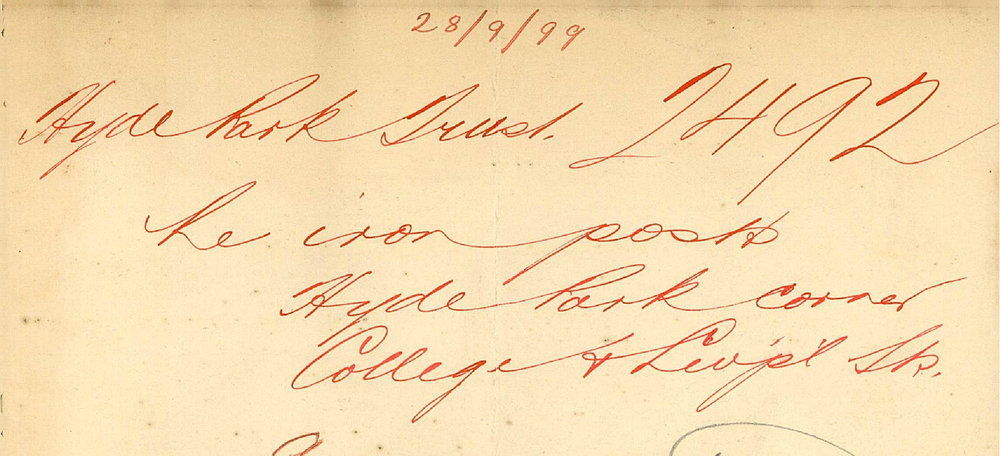 28/9/99
Hyde Park Trust. 2492
re iron posts
Hyde Park corner
College & Liv'p'l Sts.